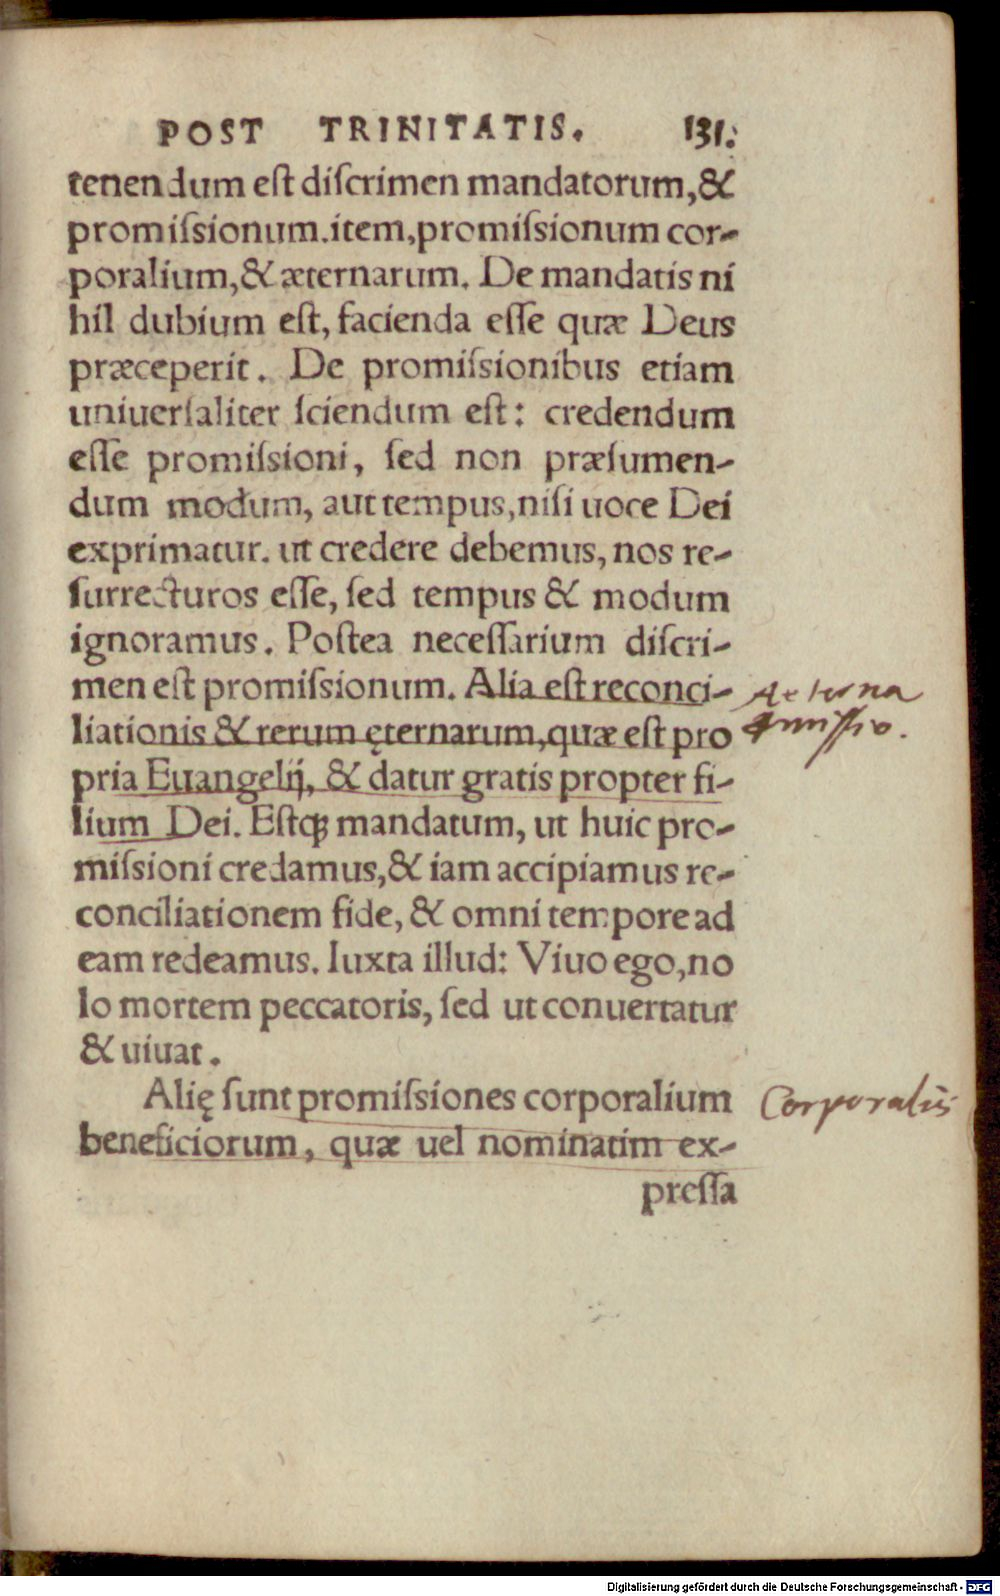 POST TRINITATIS. 131.
tenendum est diſcrimen mandatorum, &
promiſsionum. item, promiſsionum cor-
poralium, & æternarum. De mandatis ni
hil dubium est, facienda eſſe quæ Deus
præceperit. De promiſsionibus etiam
uniuerſaliter ſciendum est: credendum
eſſe promiſsioni, ſed non præſumen-
dum modum, aut tempus, niſi uoce Dei
exprimatur. ut credere debemus, nos re-
ſurrecturos eſſe, ſed tempus & modum
ignoramus. Postea neceſſarium diſcri-
men est promiſsionum. Alia est reconci- Aeterna
liationis & rerum ęternarum, quæ est pro
pria Euangelij, & datur gratis propter fi-
lium Dei. Estq́; mandatum, ut huic pro-
miſsioni credamus, & iam accipiamus re-
conciliationem fide, & omni tempore ad
eam redeamus. Iuxta illud: Viuo ego, no
lo mortem peccatoris, ſed ut conuertatur
& uiuat.
Alię ſunt promiſsiones corporalium Corporalis
beneficiorum, quæ uel nominatim ex-
preſſa
Digitalisierung gefördert durch die Deutsche Forschungsgemeinschaft - DFG